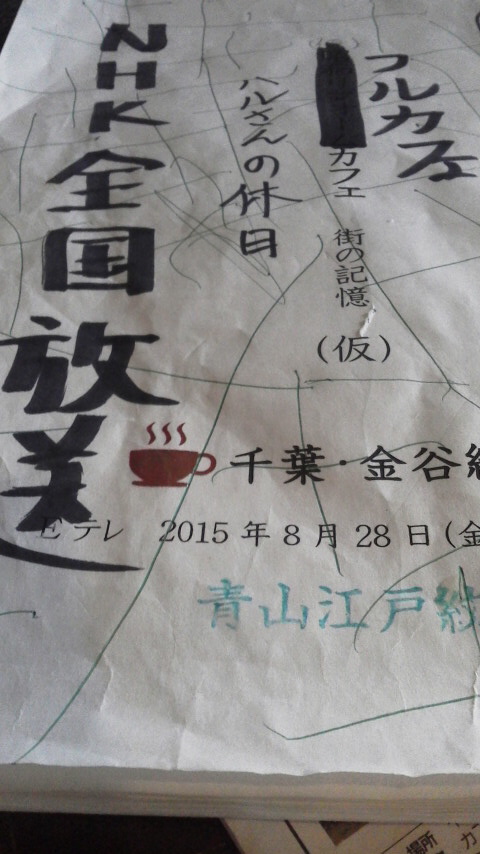 フルカフェ
カフェ 街の記憶
(仮)
ハルさんの休日
NHK全国放送
千葉・金谷
Eテレ 2015年8月28日(金
青山江戸
場所
カ